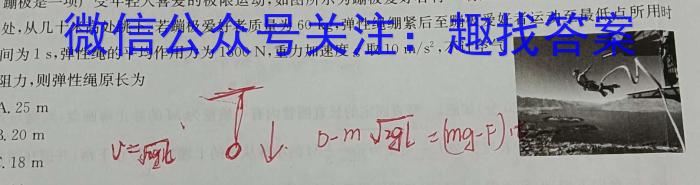 蹦极是一项广受年轻人喜爱的极限运动,如图所示为蹦极爱好者
处,从几十 跳下,若蹦极爱好者质量为 60 弹性绳绷紧后至蹦极爱好者运动至最低点所用时
间为 1 s,弹性绳的平均作用力为 1800 N,重力加速度 取 10 m/s²,不
阻力,则弹性绳原长为
微信公众号关注:趣找答案
A. 25 m
B. 20 m
C. 18 m
v=√2gL
0-m√2gL=(mg-F)t